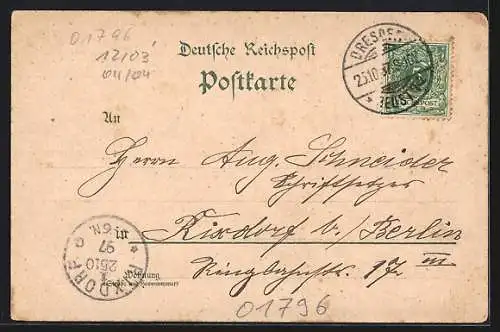 01796
12/03
04/04
Deutsche Reichspost
Postkarte
DRESDEN
25.10.97
NEUST
An
Herrn Aug. Schneider
Schriftsetzer
in Rixdorf b/Berlin
Wohnung
(Straße und Hausnummer)
Ringbahnstr. 17 III
RIXDORF
25 10
97
6-7N.
01796